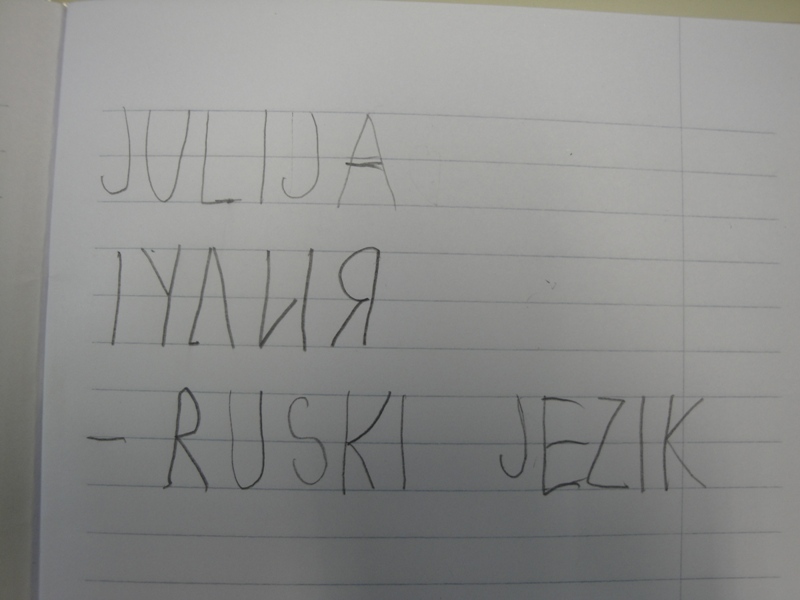 JULIJA
IУЛИЯ
- RUSKI JEZIK